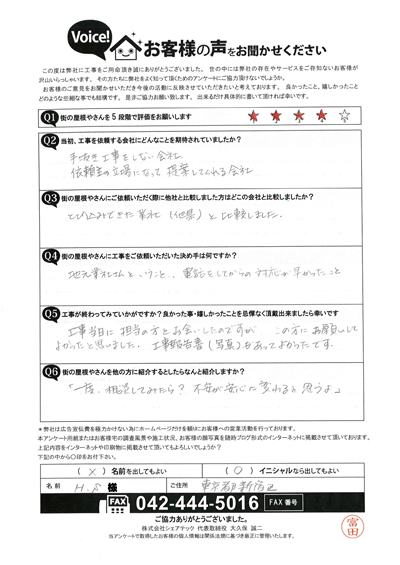 Voice!
お客様の声をお聞かせください
この度は弊社に工事をご用命頂き誠にありがとうございました。世の中には弊社の存在やサービスをご存知ないお客様が
沢山いらっしゃいます。その方たちに弊社をよく知って頂くためのアンケートにご協力頂けないでしょうか。
お客様のご意見をお聞かせいただき今後の活動に反映させていただきたいと考えております。良かったこと、嬉しかったこと
どのような些細な事でも結構です。是非ご協力お願い致します。出来るだけ具体的に書いて頂ければ幸いです。
Q1 街の屋根やさんを5段階で評価をお願いします ★ ★ ★ ★ ☆
Q2 当初、工事を依頼する会社にどんなことを期待されていましたか?
手抜き工事をしない会社
依頼主の立場になって提案してくれる会社
Q3 街の屋根やさんにご依頼いただく際に他社と比較しました方はどこの会社と比較しましたか?
とび込みできた業社(他県)と比較しました。
Q4 街の屋根やさんに工事をご依頼いただいた決め手は何ですか?
地元業社さんということ、電話をしてからの対応が早かったこと
Q5 工事が終わってみていかがですか?良かった事・嬉しかったことを忌憚なく頂戴出来ましたら幸いです
工事当日に担当の方とお会いしたのですが この方にお願いして
よかったと思いました。工事報告書(写真)もあってよかったです。
Q6 街の屋根やさんを他の方に紹介するとしたらなんと紹介しますか?
「一度、相談してみたら? 不安が安心に変わると思うよ」
*弊社は広告宣伝費を極力かけない為にホームページだけを頼りにお客様への営業活動を行っております。
本アンケート用紙またはお客様宅の調査風景や施工状況、お客様の顔写真を随時ブログ形式のインターネットに掲載させて頂いております。
上記内容をインターネットや印刷物に掲載させて頂いてもよろしいでしょうか?
下記の中から〇印をお付け下さい。
(×)名前を出してもよい (〇)イニシャルなら出してもよい
名前 H.S 様 ご住所 東京都新宿区
FAX 042-444-5016 FAX番号
ご協力ありがとうございました。
株式会社シェアテック 代表取締役 大久保 誠二
当アンケートで取得したお客様の個人情報は関係法規に基づき厳正に管理いたします。
富田